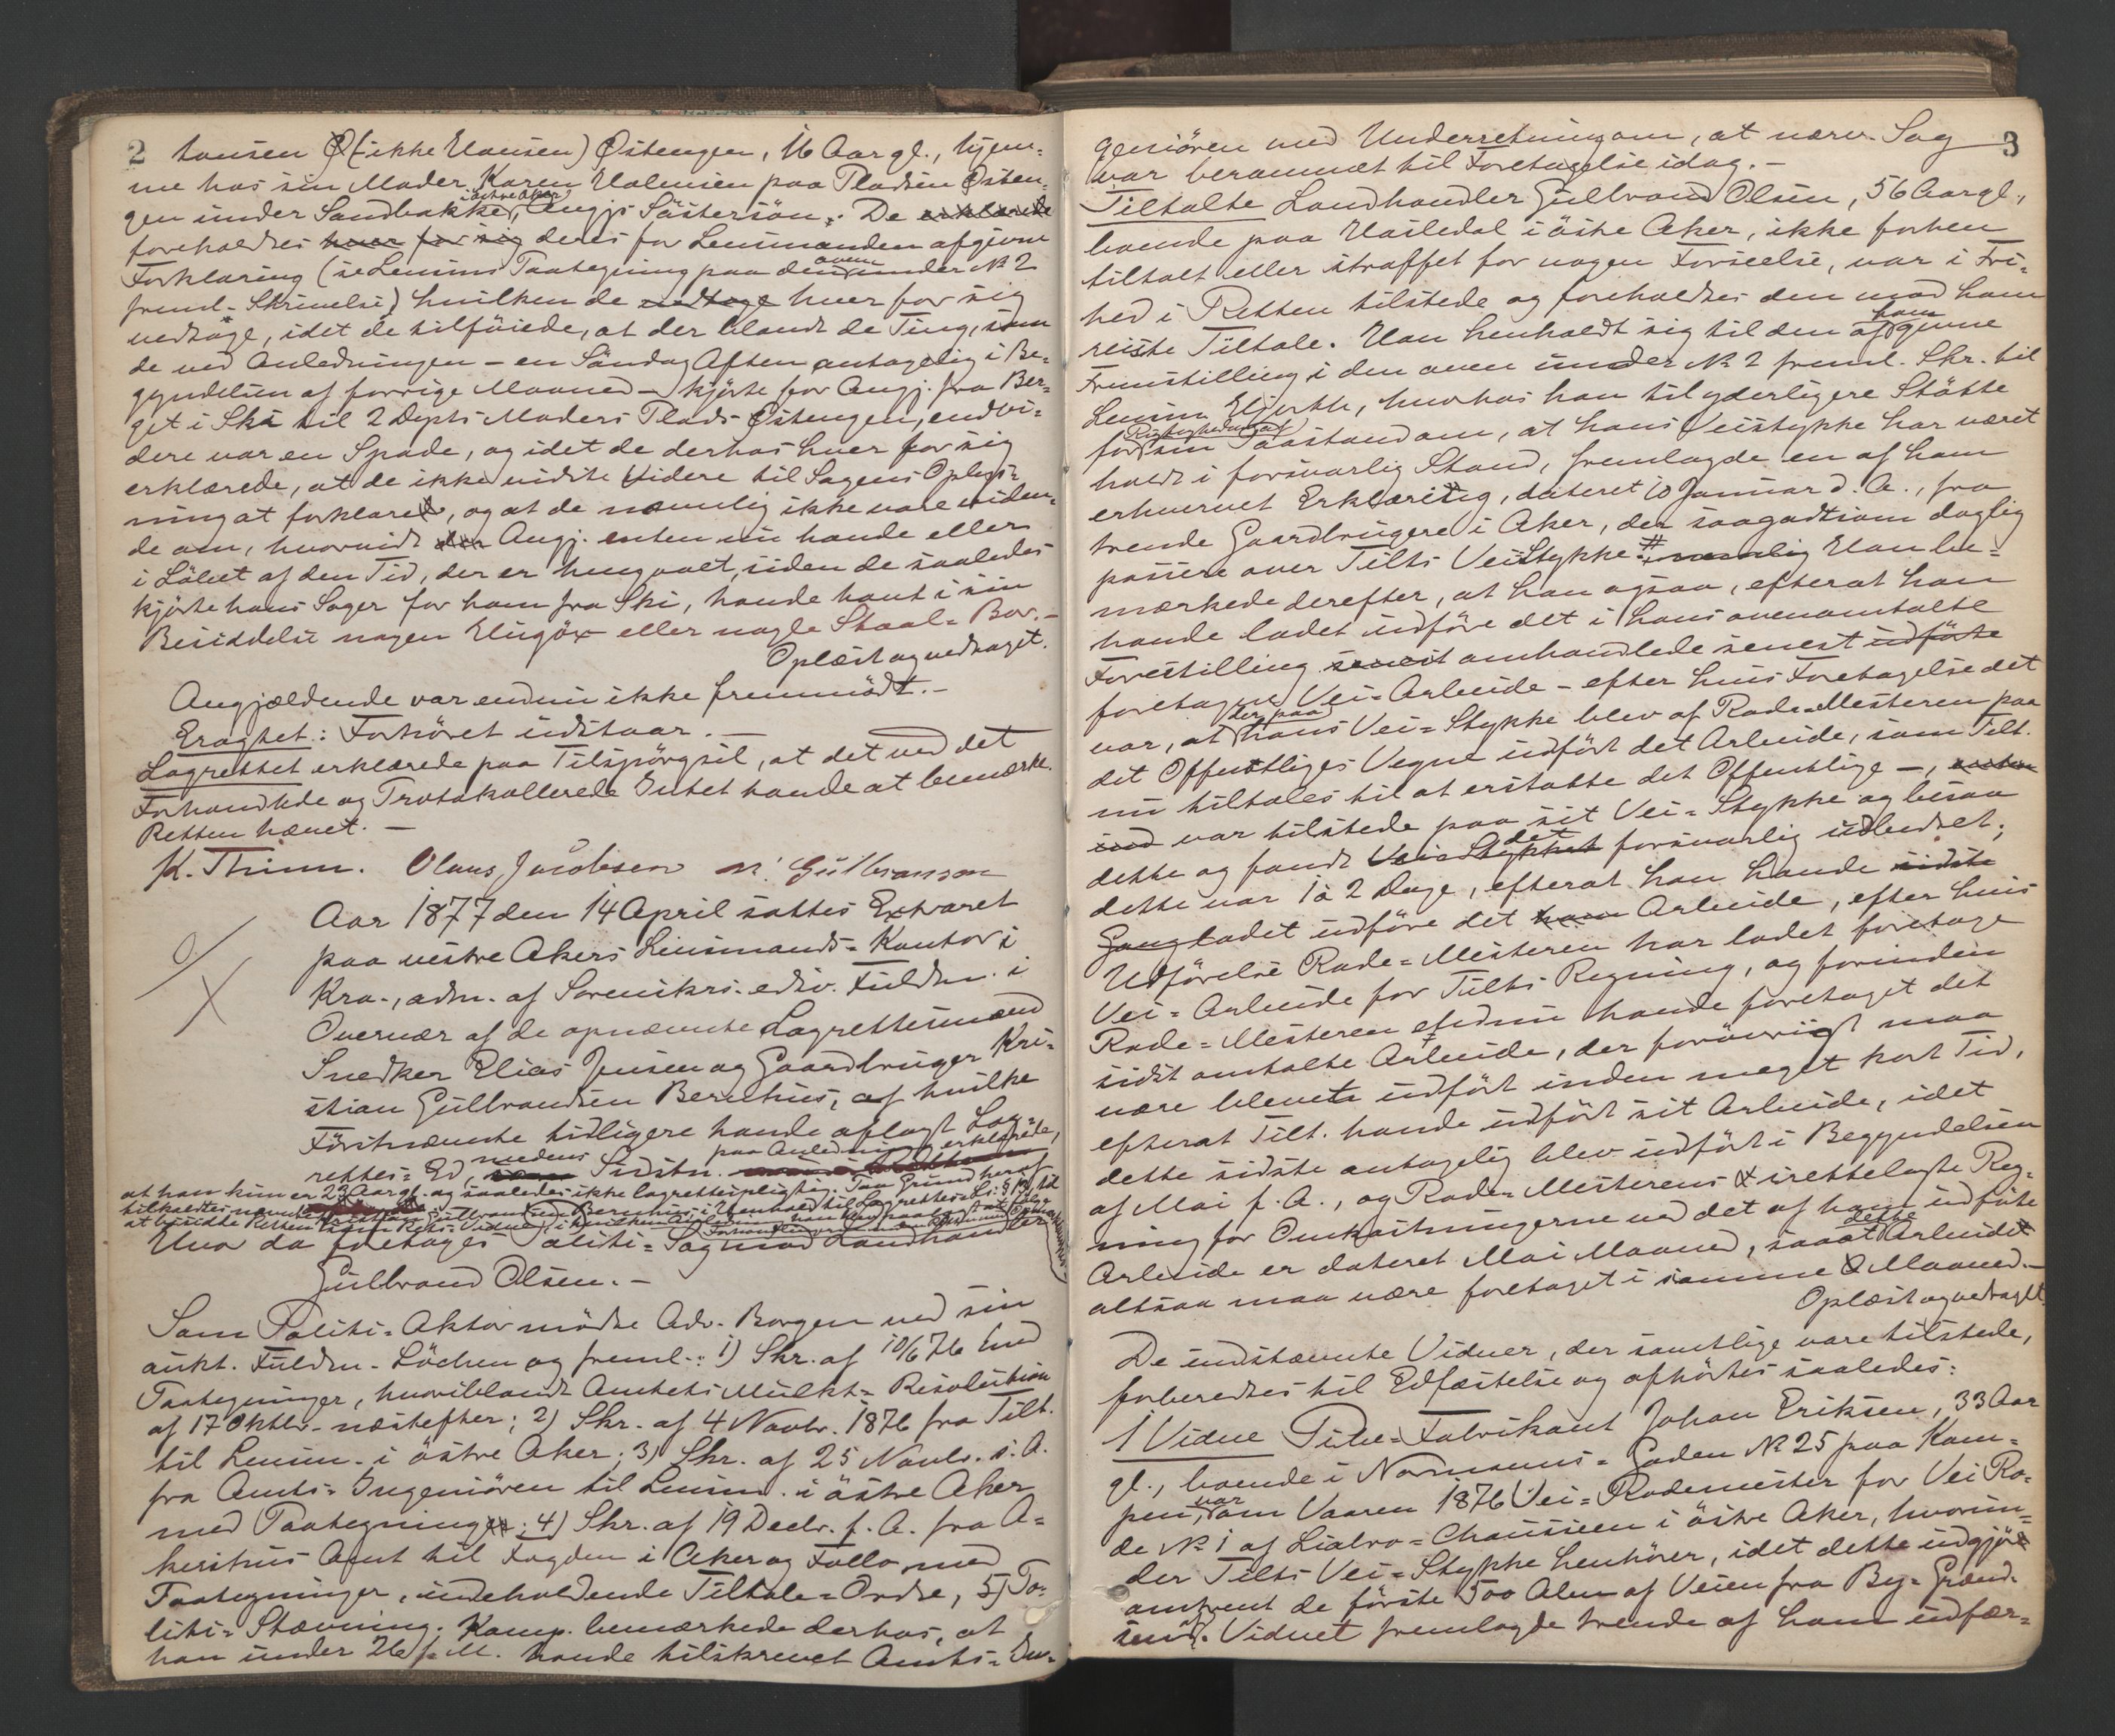 2
tansen (ikke Hansen) Østengen, 16 Aar gl., hjem-
me hos sin Moder Karen Halvorsen paa Pladsen Østen-
i østre Aker
gen under Sandbakken, Angjs Søstersøn. De erklærede
foreholdtes hver for sig deres for Lensmanden afgivne
Forklaring (se Lensms Paategning paa den oven under № 2
freml. Skrivelse) hvilken de vedtoge hver for sig
vedtoge, idet de tilføiede, at der blandt de Ting, som
de ved Anledningen – en Søndag Aften antagelig i Be-
gyndelsen af forrige Maaned – kjørte for Angj. fra Ber-
get i Ski til 2 Depts Moders Plads Østengen, endvi-
dere var en Spade, og idet de derhos hver for sig
erklærede, at de ikke vidste videre til Sagens Oplys-
ning at forklare, og at de navnlig ikke vare viden-
de om, hvorvidt Angj. enten nu havde eller
i Løbet af den Tid, der er hengaaet, siden de saaledes
kjørte hans Sager for ham fra Ski, havde havt i sin
Besiddelse nogen Hugøx eller nogle Staal-Bor.–
Oplæst og vedtaget.
Angjældende var endnu ikke fremmødt.–
Eragtet: Forhøret udstaar.–
Lagrettet erklærede paa Tilspørgsel, at det ved det
Forhandlede og Protokollerede Intet havde at bemærke.
Retten hævet.–
K. Thinn. Olaus Jacobsen M. Gulbransen
Aar 1877 den 14 April sattes Extraret
paa vestre Akers Lensmands-Kontor i
Kra., adm. af Sorenskrs. edsv. Fuldm. i
Overvær af de opnævnte Lagrettesmænd
Snedker Elias Jensen og Gaardbruger Kri-
stian Gulbrandsen Berghus, af hvilke
Førstnævnte tidligere havde aflagt Lag-
rettes-Ed, medens Sidstn. paa Anledning erklærede,
at han kun er 23 Aar gl. og saaledes ikke lagrettespligtig. Paa Grund heraf
Hvor da foretoges Politi-Sag mod Landhandler
Gulbrand Olsen.–
Som Politi-Aktor mødte Adv. Borgen ved sin
aukt. Fuldm. Løchen og freml.: 1) Skr. af 10/6 76 med
Paategninger, hvoriblandt Amtets Mulkt-Resolution
af 17 Oktbr. næstefter; 2) Skr. af 4 Novbr. 1876 fra Tilt.
til Lensm. i østre Aker; 3) Skr. af 25 Novbr. s. A.
fra Amts-Ingeniøren til Lensm. i østre Aker
med Paategning; 4) Skr. af 19 Decbr. f. A. fra A-
kershus Amt til Fogden i Aker og Follo med
Paategninger, indeholdende Tiltale-Ordre, 5) Po-
liti-Stævning. Komp. bemærkede derhos, at
han under 26 f. M. havde tilskrevet Amts-In-
3
geniøren med Underretning om, at nærv. Sag
var berammet til Foretagelse idag.–
Tiltalte Landhandler Gulbrand Olsen, 56 Aar gl.,
boende paa Hasledal i østre Aker, ikke forhen
tiltalt eller straffet for nogen Forseelse, var i Fri-
hed i Retten tilstede og foreholdtes den mod ham
reiste Tiltale. Han henholdt sig til den af ham givne
Fremstilling i den oven under № 2 freml. Skr. til
Lensm. Hjorth, hvorhos han til yderligere Støtte
for Rigtigheden af sin Paastand om, at hans Veistykke har været
holdt i forsvarlig Stand, fremlagde en af ham
erhvervet Erklæring, dateret 10 Januar d. A., fra
trende Gaardbrugere i Aker, der saagodtsom daglig
passere over Tilts Veistykke. # navnlig Han be-
mærkede derefter, at han ogsaa, efterat han
havde ladet udføre det i hans ovenomtalte
Forestilling senest omhandlede senest udførte
foretagne Vei-Arbeide – efter hvis Foretagelse det
var, at der paa hans Vei-Stykke blev af Rode-Mesteren paa
det Offentliges Vegne udført det Arbeide, som Tilt.
nu tiltales til at erstatte det Offentlige –,
var tilstede paa sit Vei-Stykke og besaa
dette og fandt Vei-Stykket det forsvarlig udbedret;
dette var 1 à 2 Dage, efterat han havde sidste
Gang ladet udføre det Arbeide, efter hvis
Udførelse Rode-Mesteren har ladet foretage
Vei-Arbeide for Tilts Regning, og forinden
Rode-Mesteren endnu havde foretaget det
sidst omtalte Arbeide, der forøvrigt maa
være blevet udført inden meget kort Tid,
efterat Tilt. havde udført sit Arbeide, idet
dette sidste antagelig blev udført i Begyndelsen
af Mai f. A., og Rode-Mesterens irettelagte Reg-
ning for Omkostningerne ved det af ham udførte
Arbeide er dateret Mai Maaned, saa at dette Arbeide
altsaa maa være foretaget i samme Maaned.–
Oplæst og vedtaget.
De indstævnte Vidner, der samtlige vare tilstede,
forberedtes til Edfæstelse og afhørtes saaledes:
1 Vidne Pibe-Fabrikant Johan Eriksen, 33 Aar
gl., boende i Normanns-Gaden № 25 paa Kam-
pen, var om Vaaren 1876 Vei-Rodemester for Vei-Ro-
de № 1 af Liabro-Chausseen i østre Aker, hvorun-
der Tilts Vei-Stykke henhører, idet dette udgjør
omtrent de første 500 Alen af Veien fra By-Grænd-
sen. Vidnet fremlagde trende af ham udfær-